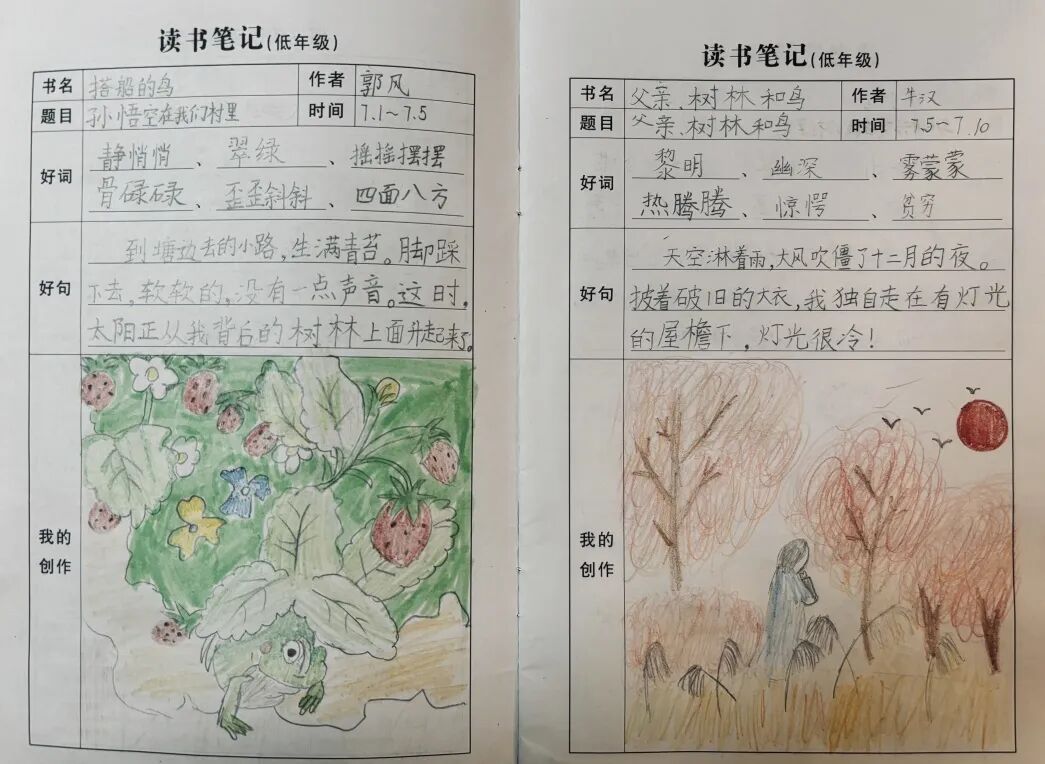 读书笔记(低年级)
书名 搭船的鸟 作者 郭风
题目 孙悟空在我们村里 时间 7.1~7.5
好词 静悄悄、翠绿、摇摇摆摆
骨碌碌、歪歪斜斜、四面八方
到塘边去的小路,生满青苔。脚踩
好句 下去,软软的,没有一点声音。这时,
太阳正从我背后的树林上面升起来了。
我的
创作
读书笔记(低年级)
书名 父亲、树林和鸟 作者 牛汉
题目 父亲、树林和鸟 时间 7.5~7.10
好词 黎明、幽深、雾蒙蒙
热腾腾、惊愕、贫穷
天空淋着雨,大风吹僵了十二月的夜。
好句 披着破旧的大衣,我独自走在有灯光
的屋檐下,灯光很冷!
我的
创作